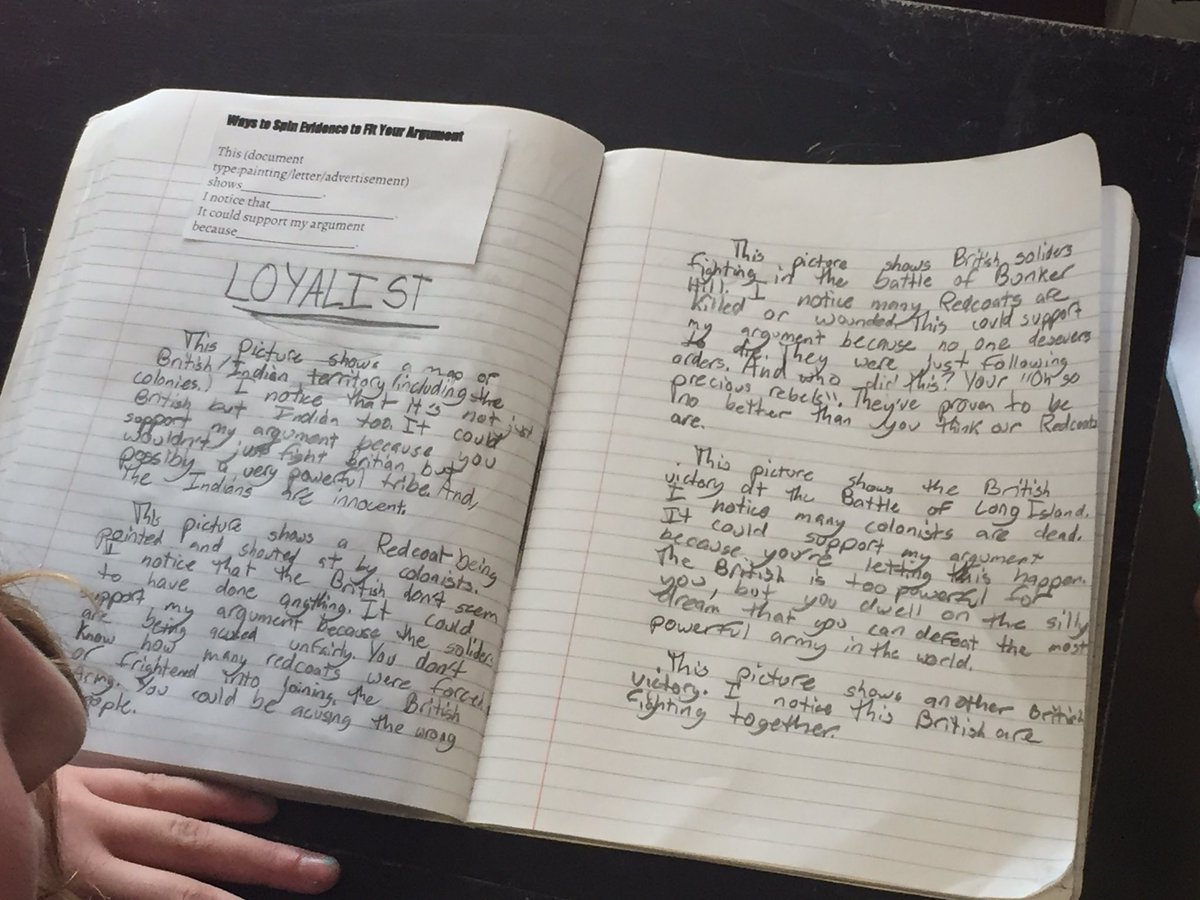 Ways to Spin Evidence to Fit Your Argument
This (document
type:painting/letter/advertisement)
shows____________.
I notice that__________________.
It could support my argument
because_________________.
LOYALIST
This Picture shows a map of
British/Indian territory (including the
colonies.) I notice that it's not just
British but Indian too. It could
support my argument because you
wouldn't just fight britian but
possibly a very powerful tribe. And,
the Indians are innocent.
This picture shows a Redcoat being
pointed and shouted at by colonists.
I notice that the British don't seem
to have done anything. It could
support my argument because the soliders
are being acused unfairly. You don't
know how many redcoats were forced
or frightened into joining the British
Army. You could be acusing the wrong
people.
This picture shows British soliders
fighting in the battle of Bunker
Hill. I notice many Redcoats are
killed or wounded. This could support
my argument because no one desevers
to die. They were just following
orders. And who did this? Your "Oh so
precious rebels". They've proven to be
no bether than you think our Redcoats
are.
This picture shows the British
victory at the Battle of Long Island.
I notice many colonists are dead.
It could support my argument
because you're letting this happen.
The British is too powerful for
you, but you dwell on the silly
dream that you can defeat the most
powerful army in the world.
This picture shows another British
victory. I notice this British are
fighting together.